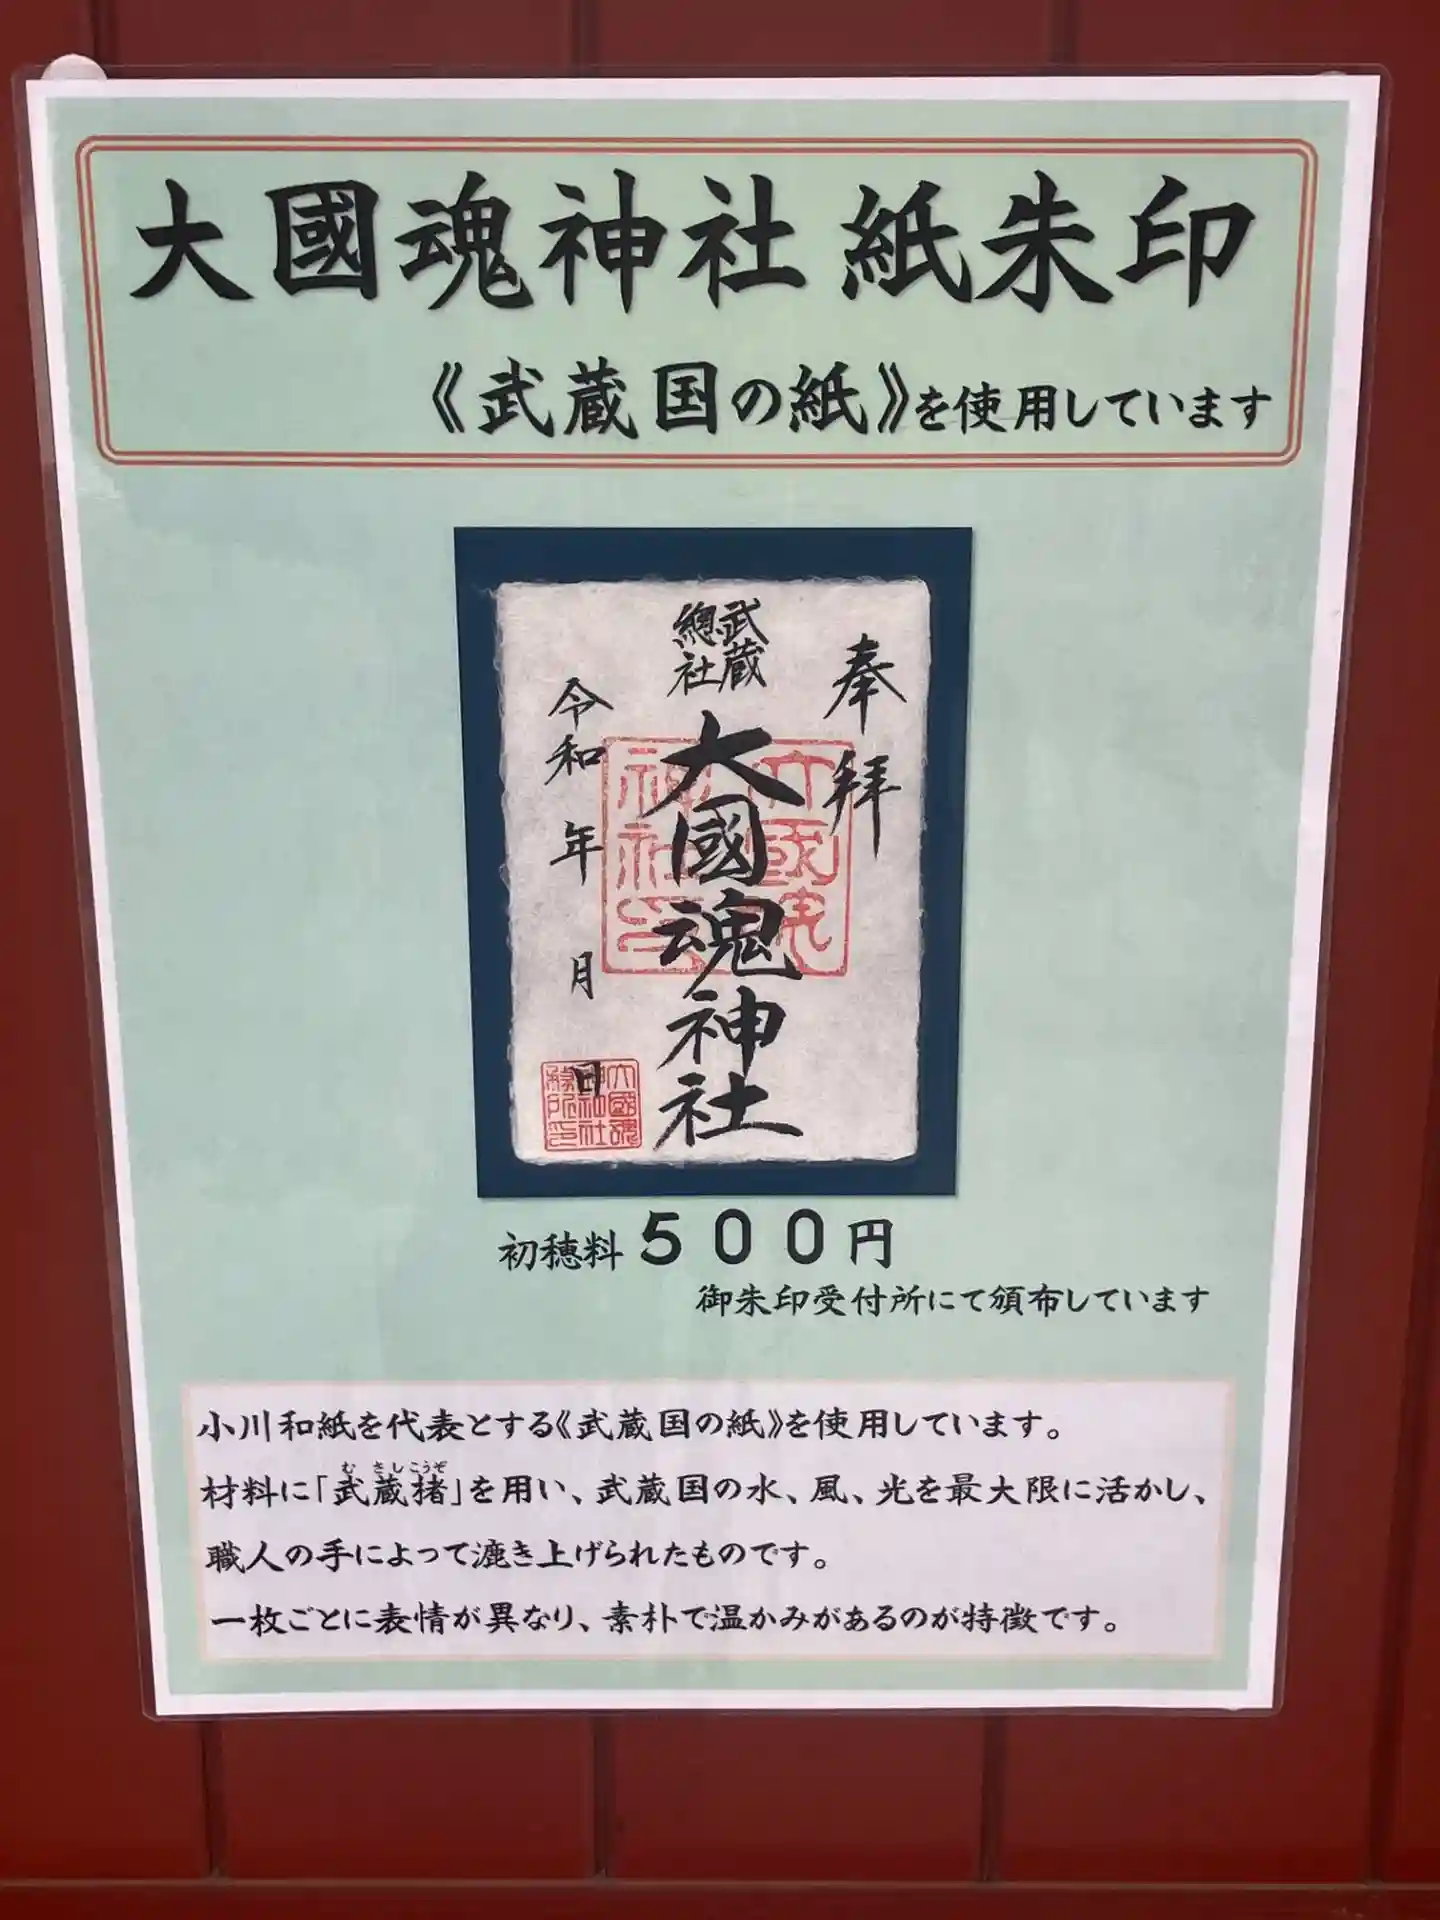 大國魂神社 紙朱印
《武蔵国の紙》を使用しています
奉拝
武蔵
總社
大國魂神社
令和 年 月 日
初穂料５００円
御朱印受付所にて頒布しています
小川和紙を代表とする《武蔵国の紙》を使用しています。
むさしこうぞ
材料に「武蔵楮」を用い、武蔵国の水、風、光を最大限に活かし、
職人の手によって漉き上げられたものです。
一枚ごとに表情が異なり、素朴で温かみがあるのが特徴です。